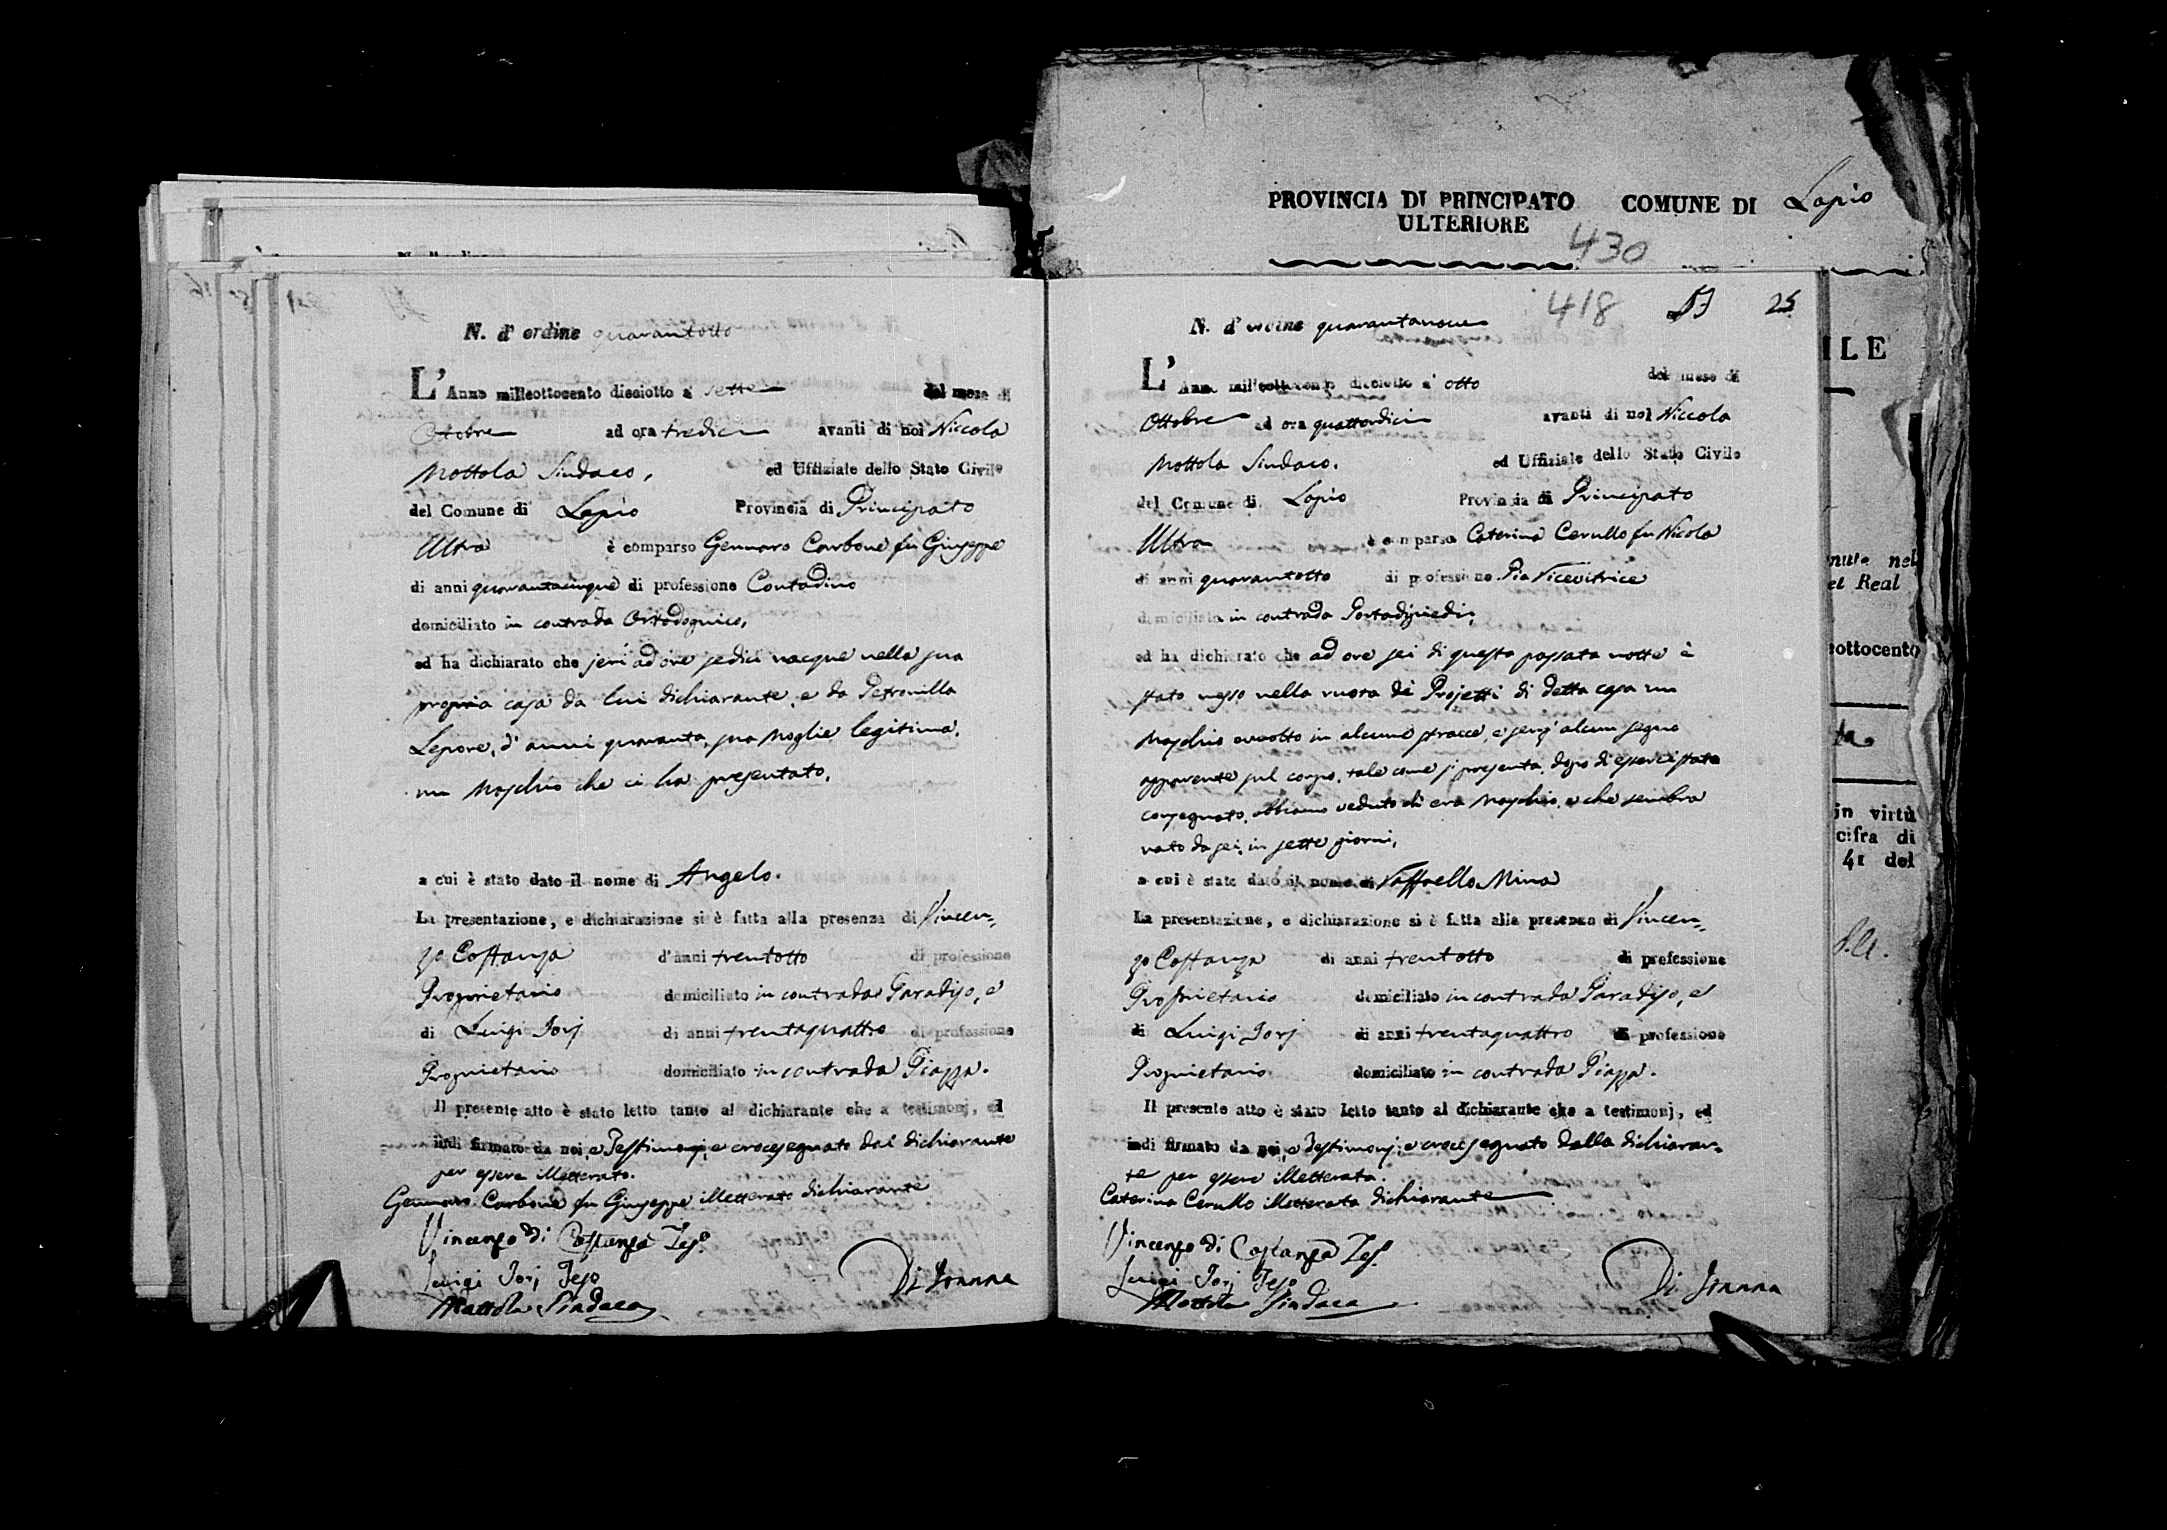 PROVINCIA DI PRINCIPATO COMUNE DI Lapio
ULTERIORE
430
N. d' ordine quarantotto
L'Anno milleottocento dieciotto a' sette del mese di
Ottobre ad ora tredici avanti di noi Niccola
Mottola Sindaco, ed Uffiziale dello Stato Civile
del Comune di Lapio Provincia di Principato
Ultra è comparso Gennaro Carbone fu Giuseppe
di anni quarantacinque di professione Contadino
domiciliato in contrada Ortodognico,
ed ha dichiarato che jeri ad ore sedici nacque nella sua
propria casa da lui dichiarante, e da Petronilla
Lepore, d'anni quaranta, sua Moglie legitima,
un Maschio che ci ha presentato,
a cui è stato dato il nome di Angelo.
La presentazione, e dichiarazione si è fatta alla presenza di Vincen-
zo Costanza d'anni trentotto di professione
Proprietario domiciliato in contrada Paradiso, e
di Luigi Jorj di anni trentaquattro di professione
Proprietario domiciliato in contrada Piazza.
Il presente atto è stato letto tanto al dichiarante che a testimonj, ed
indi firmato da noi, e Testimonj, e crocesegnato dal dichiarante
per essere illetterato.
Gennaro Carbone fu Giuseppe illetterato dichiarante
Vincenzo di Costanza Teso
Luigi Jorj Teso
Mottola Sindaco
Di Joanna
418 25
N. d' ordine quarantanove
L'Anno milleottocento dieciotto a' otto del mese di
Ottobre ad ora quattordici avanti di noi Niccola
Mottola Sindaco. ed Uffiziale dello Stato Civile
del Comune di Lapio Provincia di Principato
Ultra è comparsa Caterina Cerullo fu Nicola
di anni quarantotto di professione Pia Ricevitrice
domiciliata in contrada Portadipiedi,
ed ha dichiarato che ad ore sei di questa passata notte è
stato messo nella ruota dè Projetti di detta casa un
Maschio avvolto in alcune stracce, e senz'alcun segno
apparente sul corpo, tale come si presenta, dopo di esserci stato
consegnato, abbiamo veduto ch'era Maschio, e che sembra
nato da sei, in sette giorni,
a cui è stato dato il nome di Raffaello Mina
La presentazione, e dichiarazione si è fatta alla presenza di Vincen-
zo Costanza di anni trentotto di professione
Proprietario domiciliato in contrada Paradiso, e
di Luigi Jorj di anni trentaquattro di professione
Proprietario domiciliato in contrada Piazza.
Il presente atto è stato letto tanto al dichiarante che a testimonj, ed
indi firmato da noi, e Testimonj, e crocesegnato dalla dichiaran-
te per essere illetterata.
Caterina Cerullo illetterata dichiarante
Vincenzo di Costanza Teso
Luigi Jorj Teso
Mottola Sindaco
Di Joanna
ILE
nute nel
et Real
eottocento
in virtù
cifra di
41 del